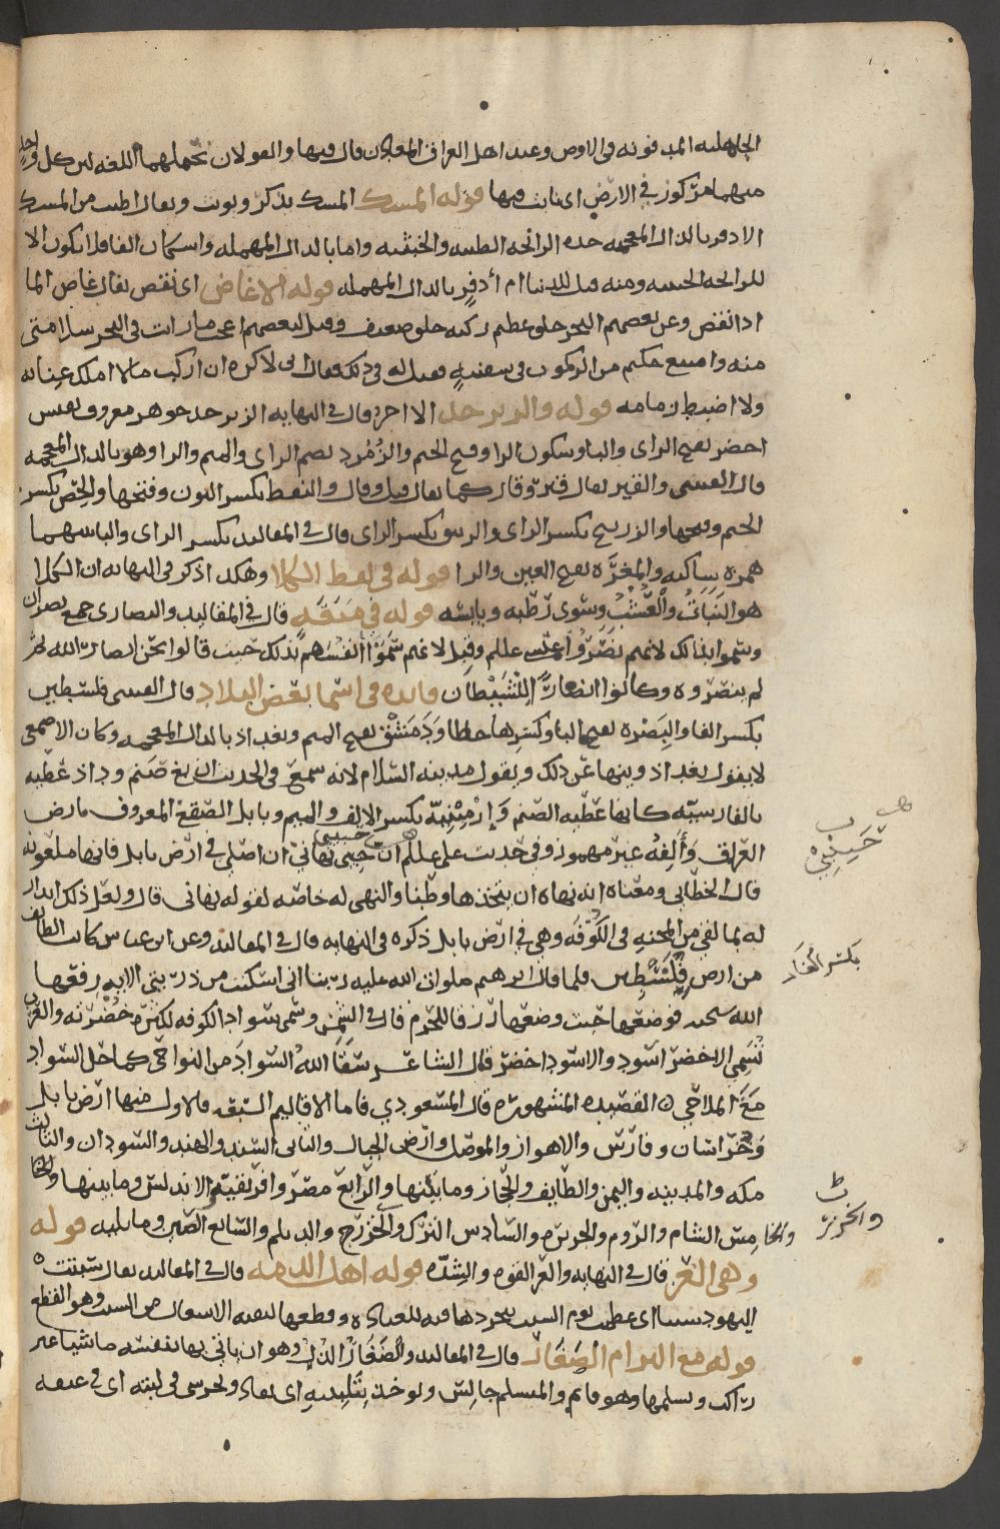 الجاهليه المدفونه فى الارض وعند اهل العراق المعادن قال فيها والقولان تحتملهما اللغه لان كل واحد
منهما مركوز في الارض اى ثابت فيها قوله المسك المسك يذكر ويونث ويقال اطيب من المسك
الاذفر بالذال المعجمه حده الرائحه الطيبه والخبيثه واما بالدال المهمله واسكان الفا فلا يكون الا
للرائحه الخبيثه ومنه قيل للدنيا ام أدفر بالدال المهمله قوله الا غاض اى نقص يقال غاض الما
اذا نقص وعن بعضهم البحر خلق عظيم ركبه خلق ضعيف وقيل لبعضهم اعجب ما رايت فى البحر سلامتى
منه وامتنع حكيم من الركوب فى سفينةٍ فقيل له فى ذلك فقال انى لاكره ان اركب ما لا املك عنانه
ولا اضبط زمامه قوله والزبرجد الا احره قال فى النهايه الزبرجد جوهر معروف نفيس
اخضر بفتح الزاى والبا وسكون الرا وفتح الجيم والزُمُرد بضم الزاى والميم والرا وهو بالذال المعجمه
قال العبسى والقير يقال قير وقار كما يقال قيل وقال والنفط بكسر النون وفتحها والجص بكسر
الجيم وفتحها والزرنيخ بكسر الزاى والزيبق بكسر الزاى قال فى المقاليد بكسر الزاى والبا بينهما
همزه ساكنه والمغرَّه بفتح الغين والرا قوله فى لفظ الكلا وهكذا ذكر فى النهايه ان الكلا
هو النبات والعُشْبُ وسَوى رطبه ويابسه قوله في صدقه قال فى المقاليد والنصارى جمع نصران
وسموا بذلك لانهم نصروا عيسى عللم وقيل لانهم سَمَّوْا انفسهم بذلك حيث قالوا نحن انصار الله ثم
لم ينصروه وكانوا انصارًا للشيطان فائده فى اسما بعض البلاد قال العبسى فلسطين
بكسر الفا والبَصْره بفتح البا وكسرها خطا ودَمَشْق بفتح الميم وبغداذ بالذال المعجمه وكان الاصمعى
لا يقول بغداذ وينهى عن ذلك ويقول مدينه السلام لانه سمع فى الحديث ان بغ صنم وداذ عطيه
بالفارسيه كانها عطيه الصنم وَإرْمِيْنِيَّه بكسر الالف والميم وبابل الصقع المعروف بارض
العراق وَألِفُه غير مهموز وفي حديث على عللم ان حِبِّى نهانى ان اصلى فى ارض بابل فانها ملعونه
قال الخطابى ومعناه الله نهاه ان يتخذها وطنا والنهى له خاصه لقوله نهانى قال ولعل ذلك انذار
له بما لقى من المحنه فى الكوفه وهى فى ارض بابل ذكره فى النهايه قال فى المقاليد وعن ابن عباس كانت الطائف
من ارض فِلَسْطِين فلما قال ابرهيم صلوات الله عليه ربنا انى اسكنت من ذريتى الايه رفعها
الله سبحنه فوضعها حيث وضعها رزقا للحرم قال فى الشمس وسمى سواد الكوفه لكثره خضرته والعرب
تسمى الاخضر اسود والاسود اخضر قال الشاعر سقا اللهُ السوادَ من النواحى كما حل السواد
مع الملاحى ن القصيده المشهوره قال المسعودي فاما الاقاليم السبعه فالاول منها ارض بابل
وخراسان وفارس والاهواز والموصل وارض الجبال والثانى السند والهند والسودان والثالث
مكه والمدينه واليمن والطايف والحجاز وما بينها والرابع مصر وافريقيه والاندلس وما بينها والخا
والخامس الشام والروم والجزيره والسادس الترك والخزرج والديلم والسابع الصين وما يليه قوله
وهى الغر قال فى النهايه والغر القوه والشده قوله اهل الذمه قال فى المقاليد يقال سَبَتَت
اليهود سبتا اى عظمت يوم السبت بتجردها فيه للعباده وقطعها لبقيه الاشغال من السبت وهو القطع
قوله مع التزام الصَغَار قال فى المقاليد والصَّغَار الذل وهو ان ياتى بها بنفسه ماشيا غير
راكب ويسلمها وهو قايم والمسلم جالس ويوخذ بتلبيبه اى فى عنقه
حبيبى
بكسر الفا
والجزيره